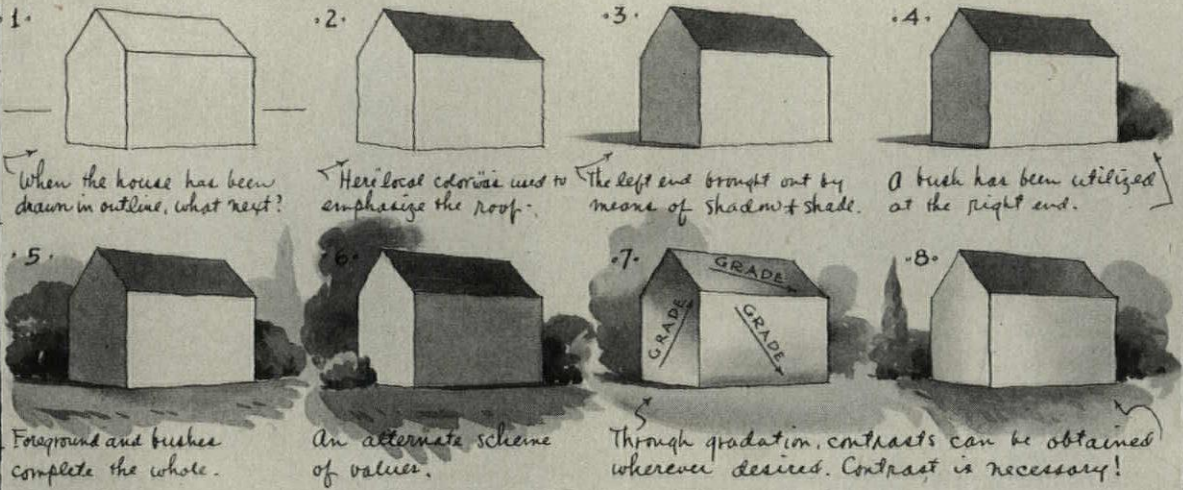 ·1·
·2·
·3·
·4·
When the house has been
drawn in outline, what next?
Here local color was used to
emphasize the roof.
The left end brought out by
means of shadow & shade.
A bush has been utilized
at the right end.
·5·
6·
·7·
·8·
GRADE
GRADE
GRADE
Foreground and bushes
complete the whole.
An alternate scheme
of values.
Through gradation, contrasts can be obtained
wherever desired. Contrast is necessary!